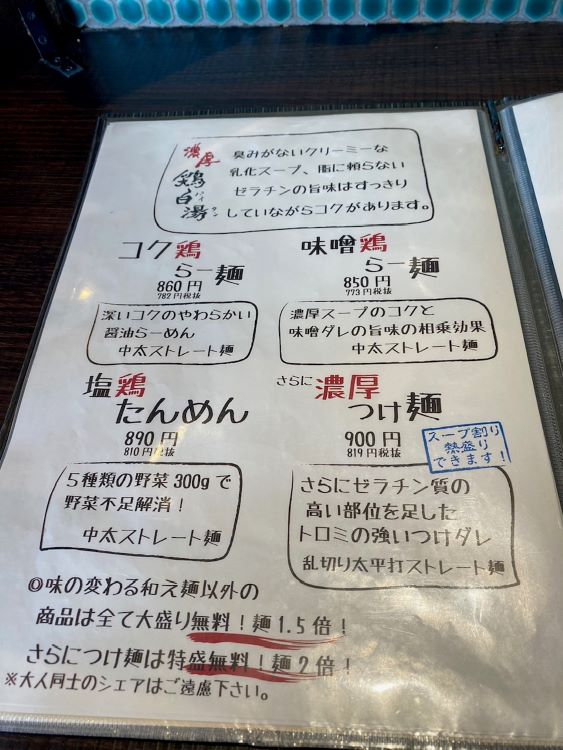 濃厚
鶏白湯
パイタン
臭みがないクリーミーな
乳化スープ、脂に頼らない
ゼラチンの旨味はすっきり
していながらコクがあります。
コク鶏
らー麺
860円
782円税抜
深いコクのやわらかい
醤油らーめん
中太ストレート麺
味噌鶏
らー麺
850円
773円税抜
濃厚スープのコクと
味噌ダレの旨味の相乗効果
中太ストレート麺
塩鶏
たんめん
890円
810円税抜
5種類の野菜300gで
野菜不足解消！
中太ストレート麺
さらに濃厚
つけ麺
900円
819円税抜
スープ割り
熱盛り
できます！
さらにゼラチン質の
高い部位を足した
トロミの強いつけダレ
乱切り太平打ストレート麺
◎味の変わる和え麺以外の
商品は全て大盛り無料！麺1.5倍！
さらにつけ麺は特盛無料！麺2倍！
※大人同士のシェアはご遠慮下さい。